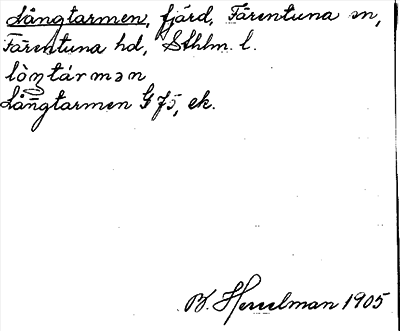 Långtarmen, fjärd, Färentuna sn,
Färentuna hd, Sthlm. l.
lòŋtármən
Långtarmen G 75, ek.
B. Hesselman 1905